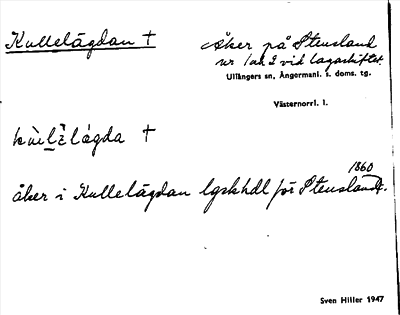 Kullelägdan †
Åker på Stensland
nr 1 och 2 vid lagaskiftet.
Ullångers sn, Ångermanl. s. doms. tg.
Västernorrl. l.
lägda †
1860
åker i Kullelägdan lgskhdl för Stensland.
Sven Hiller 1947